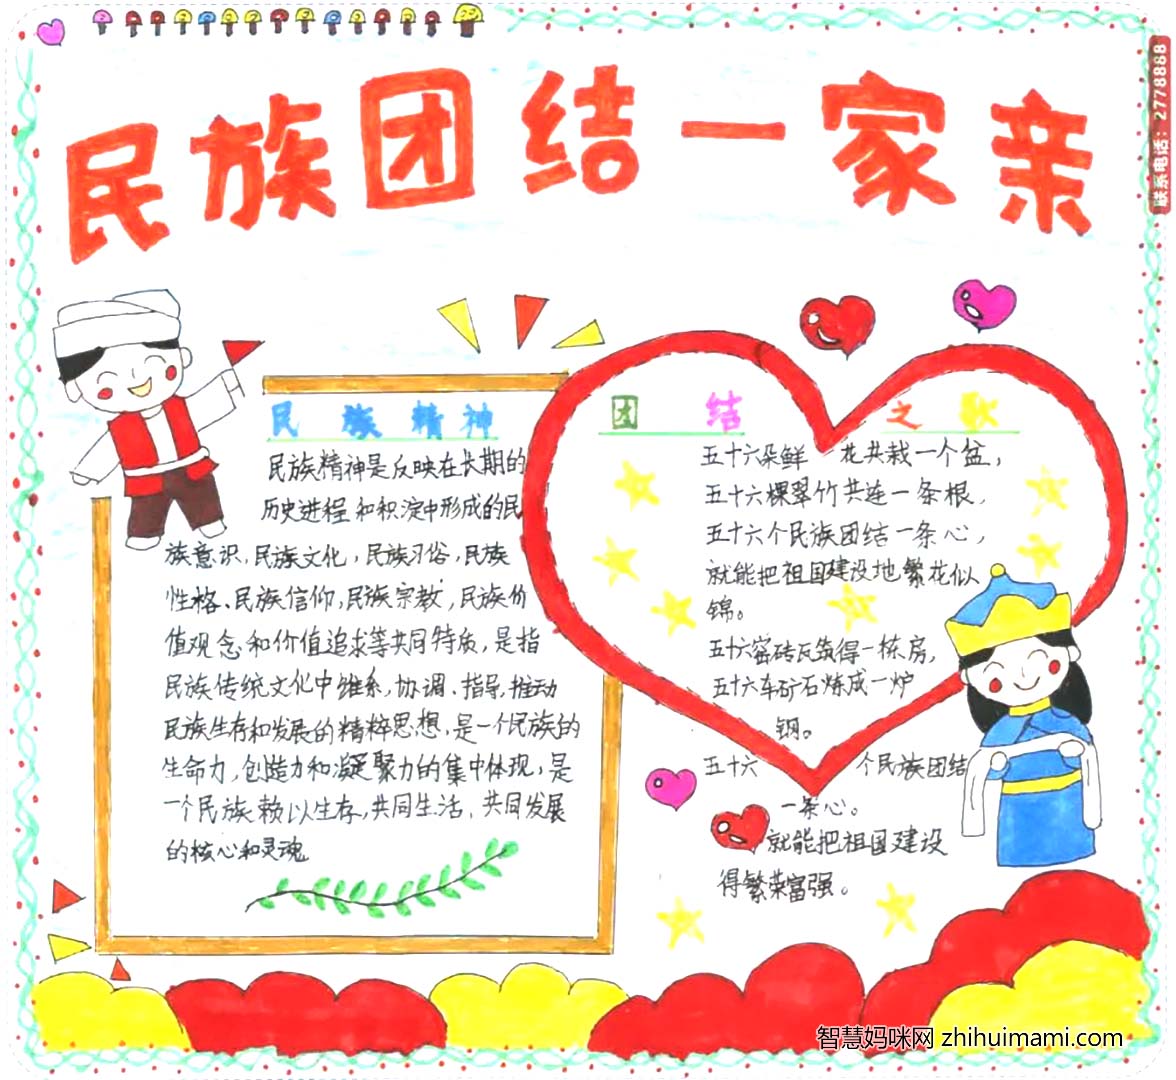 民族团结一家亲
联系电话：2778888
民族精神
民族精神是反映在长期的
历史进程和积淀中形成的民
族意识、民族文化，民族习俗，民族
性格、民族信仰，民族宗教，民族价
值观念和价值追求等共同特质，是指
民族传统文化中维系，协调、指导，推动
民族生存和发展的精粹思想，是一个民族的
生命力，创造力和凝聚力的集中体现，是
一个民族赖以生存，共同生活，共同发展
的核心和灵魂
团结之歌
五十六朵鲜花共栽一个盆，
五十六棵翠竹共连一条根，
五十六个民族团结一条心，
就能把祖国建设地繁花似
锦。
五十六窑砖瓦筑得一栋房，
五十六车矿石炼成一炉
钢。
五十六个民族团结
一条心。
就能把祖国建设
得繁荣富强。
智慧妈咪网 zhihuimami.com